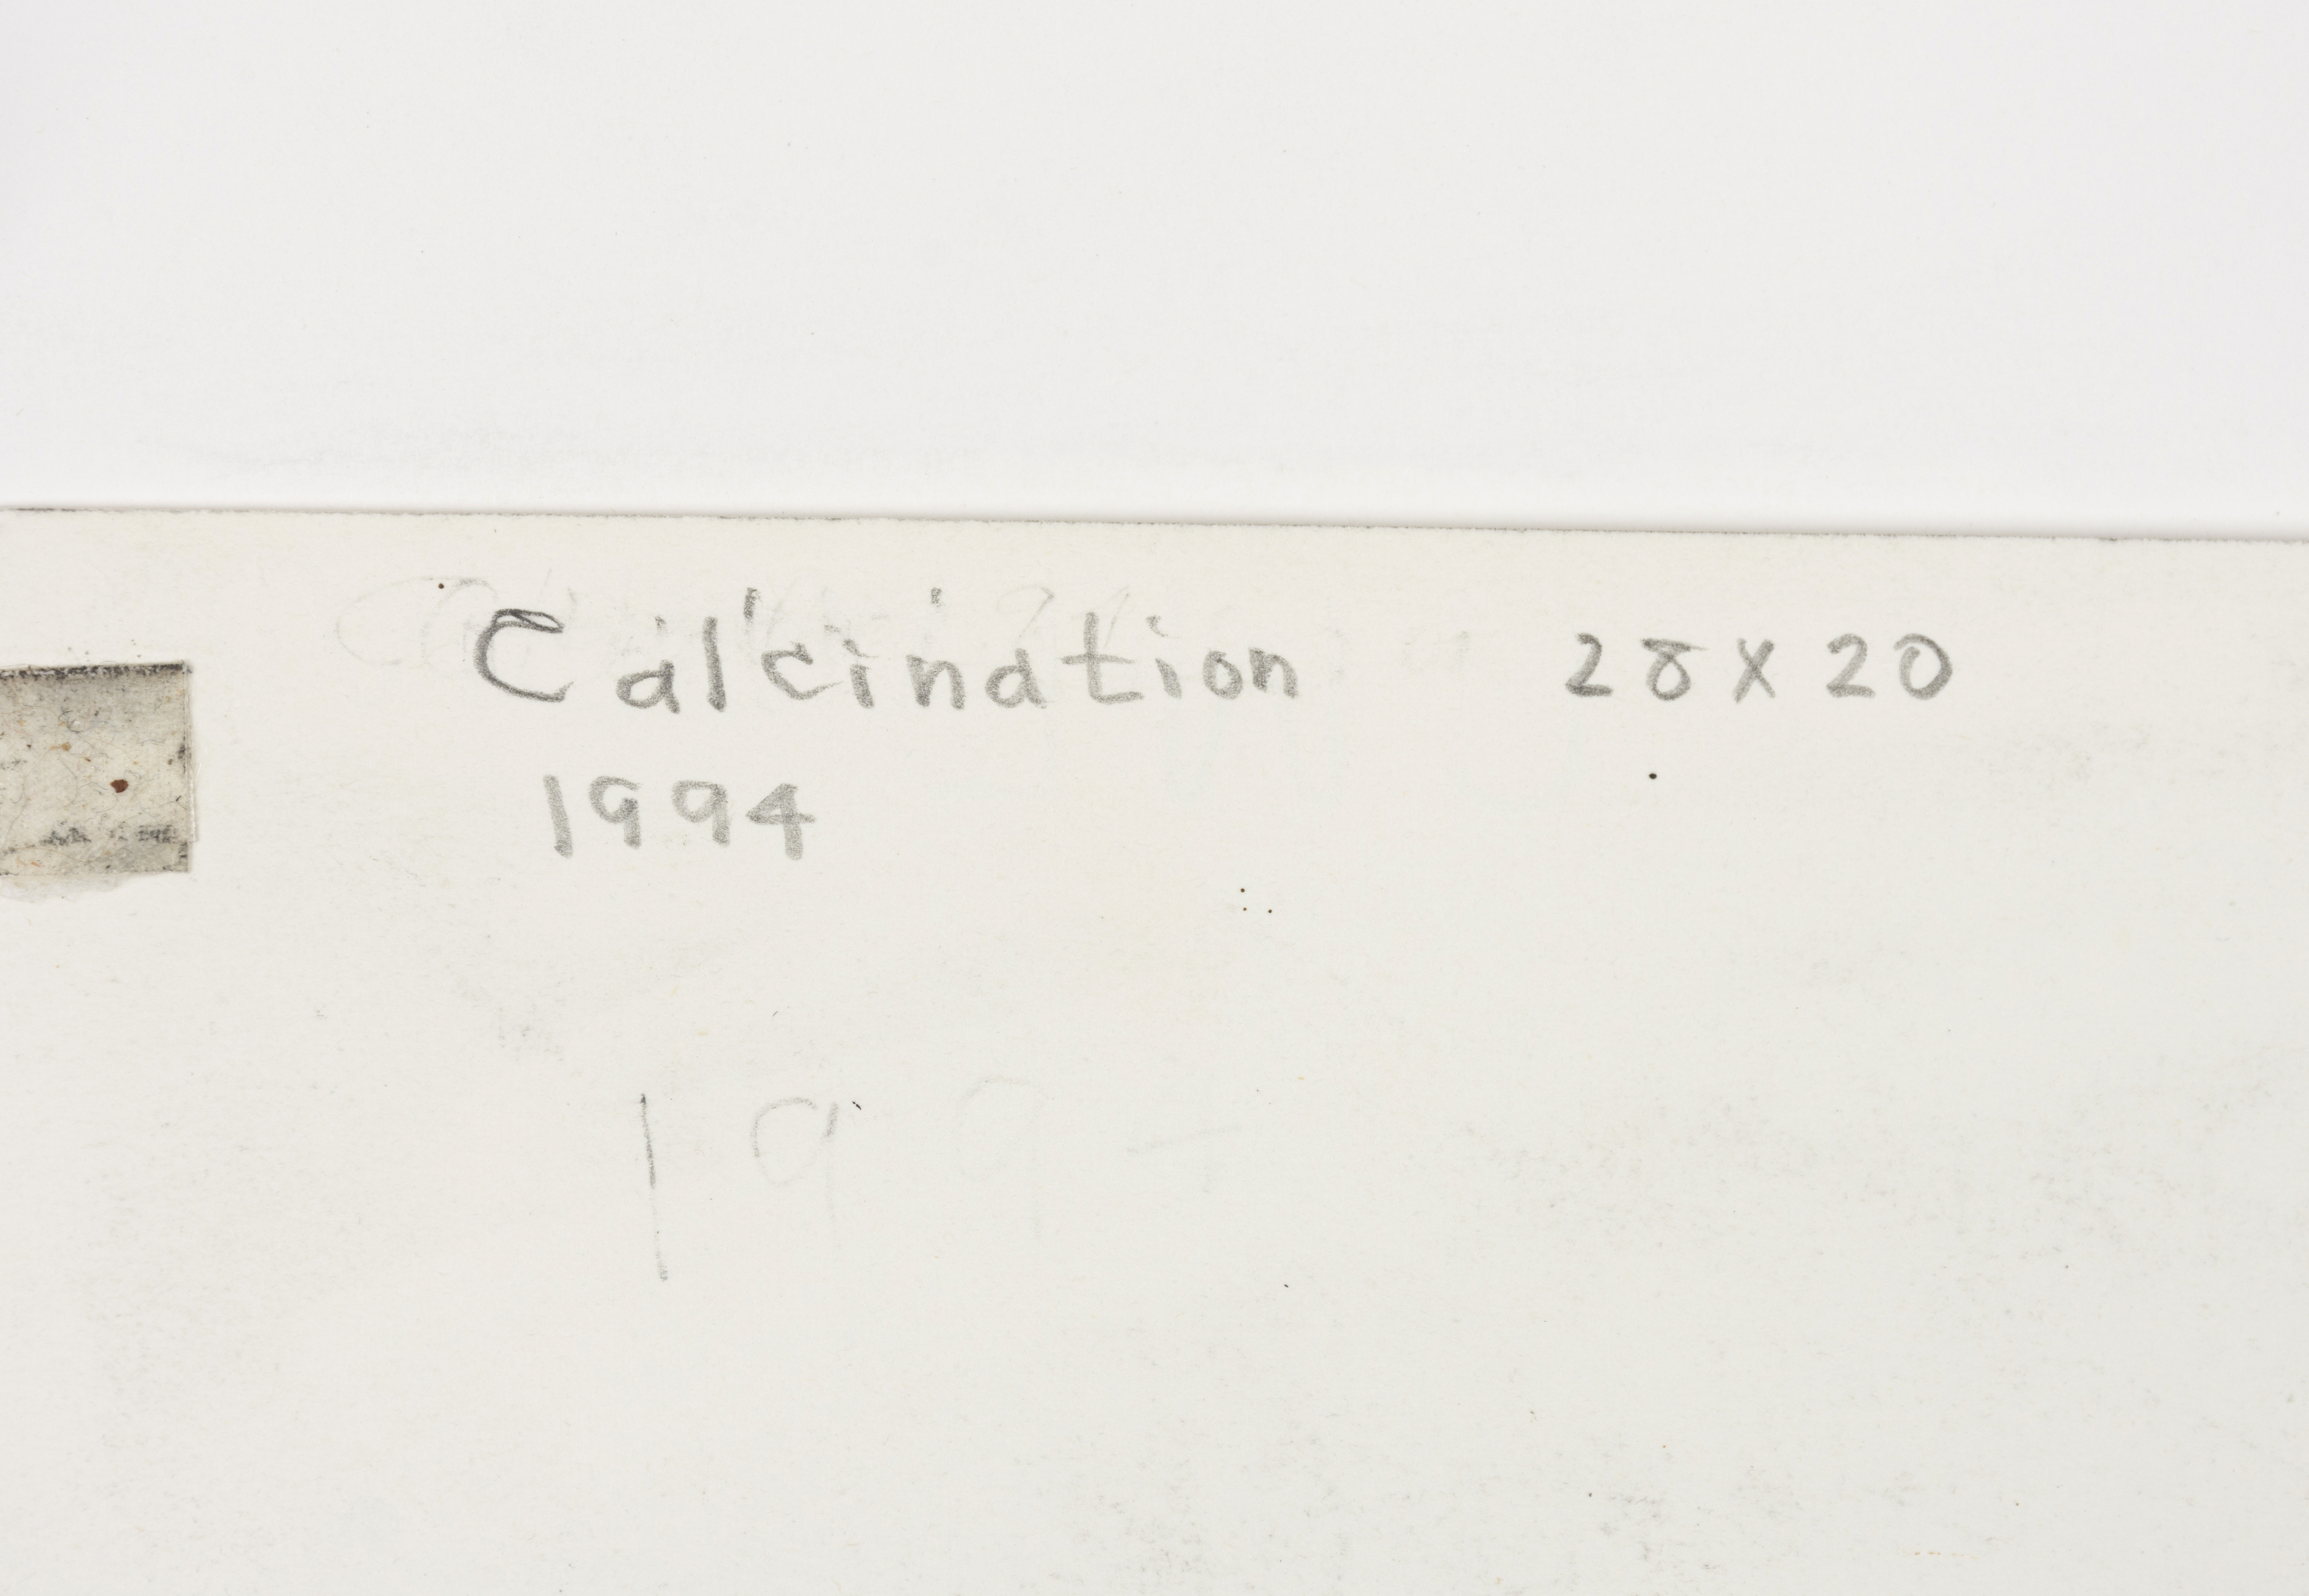 Calcination 28 X 20
1994
199